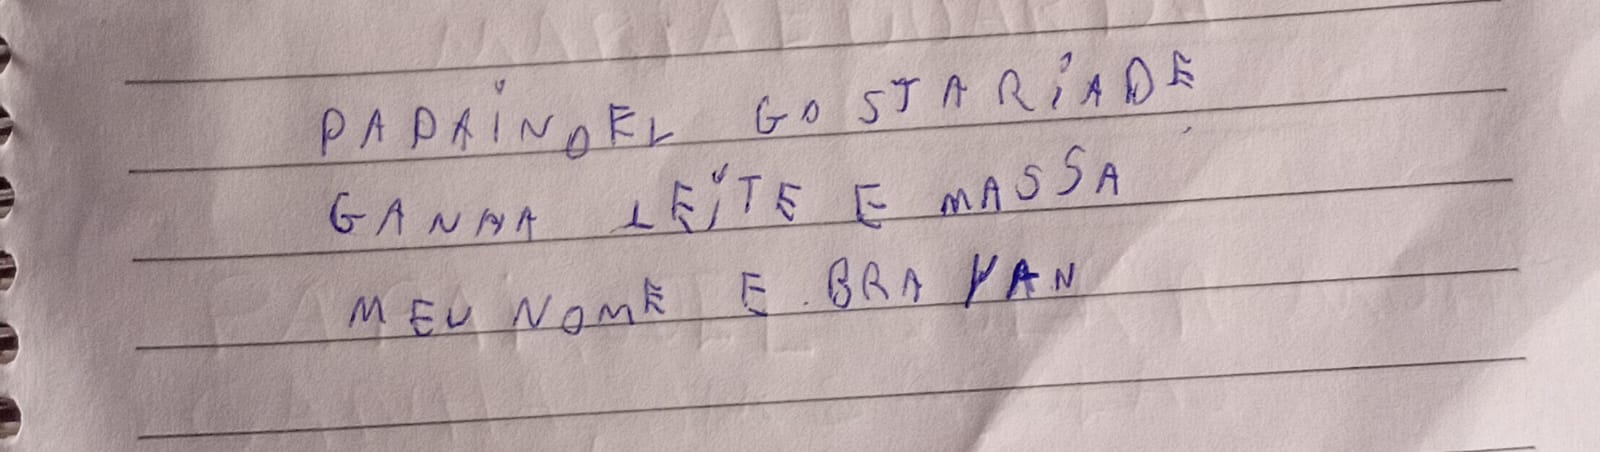 PAPAINOEL GOSTARIADE
GANHA LEITE E MASSA
MEU NOME E BRAYAN